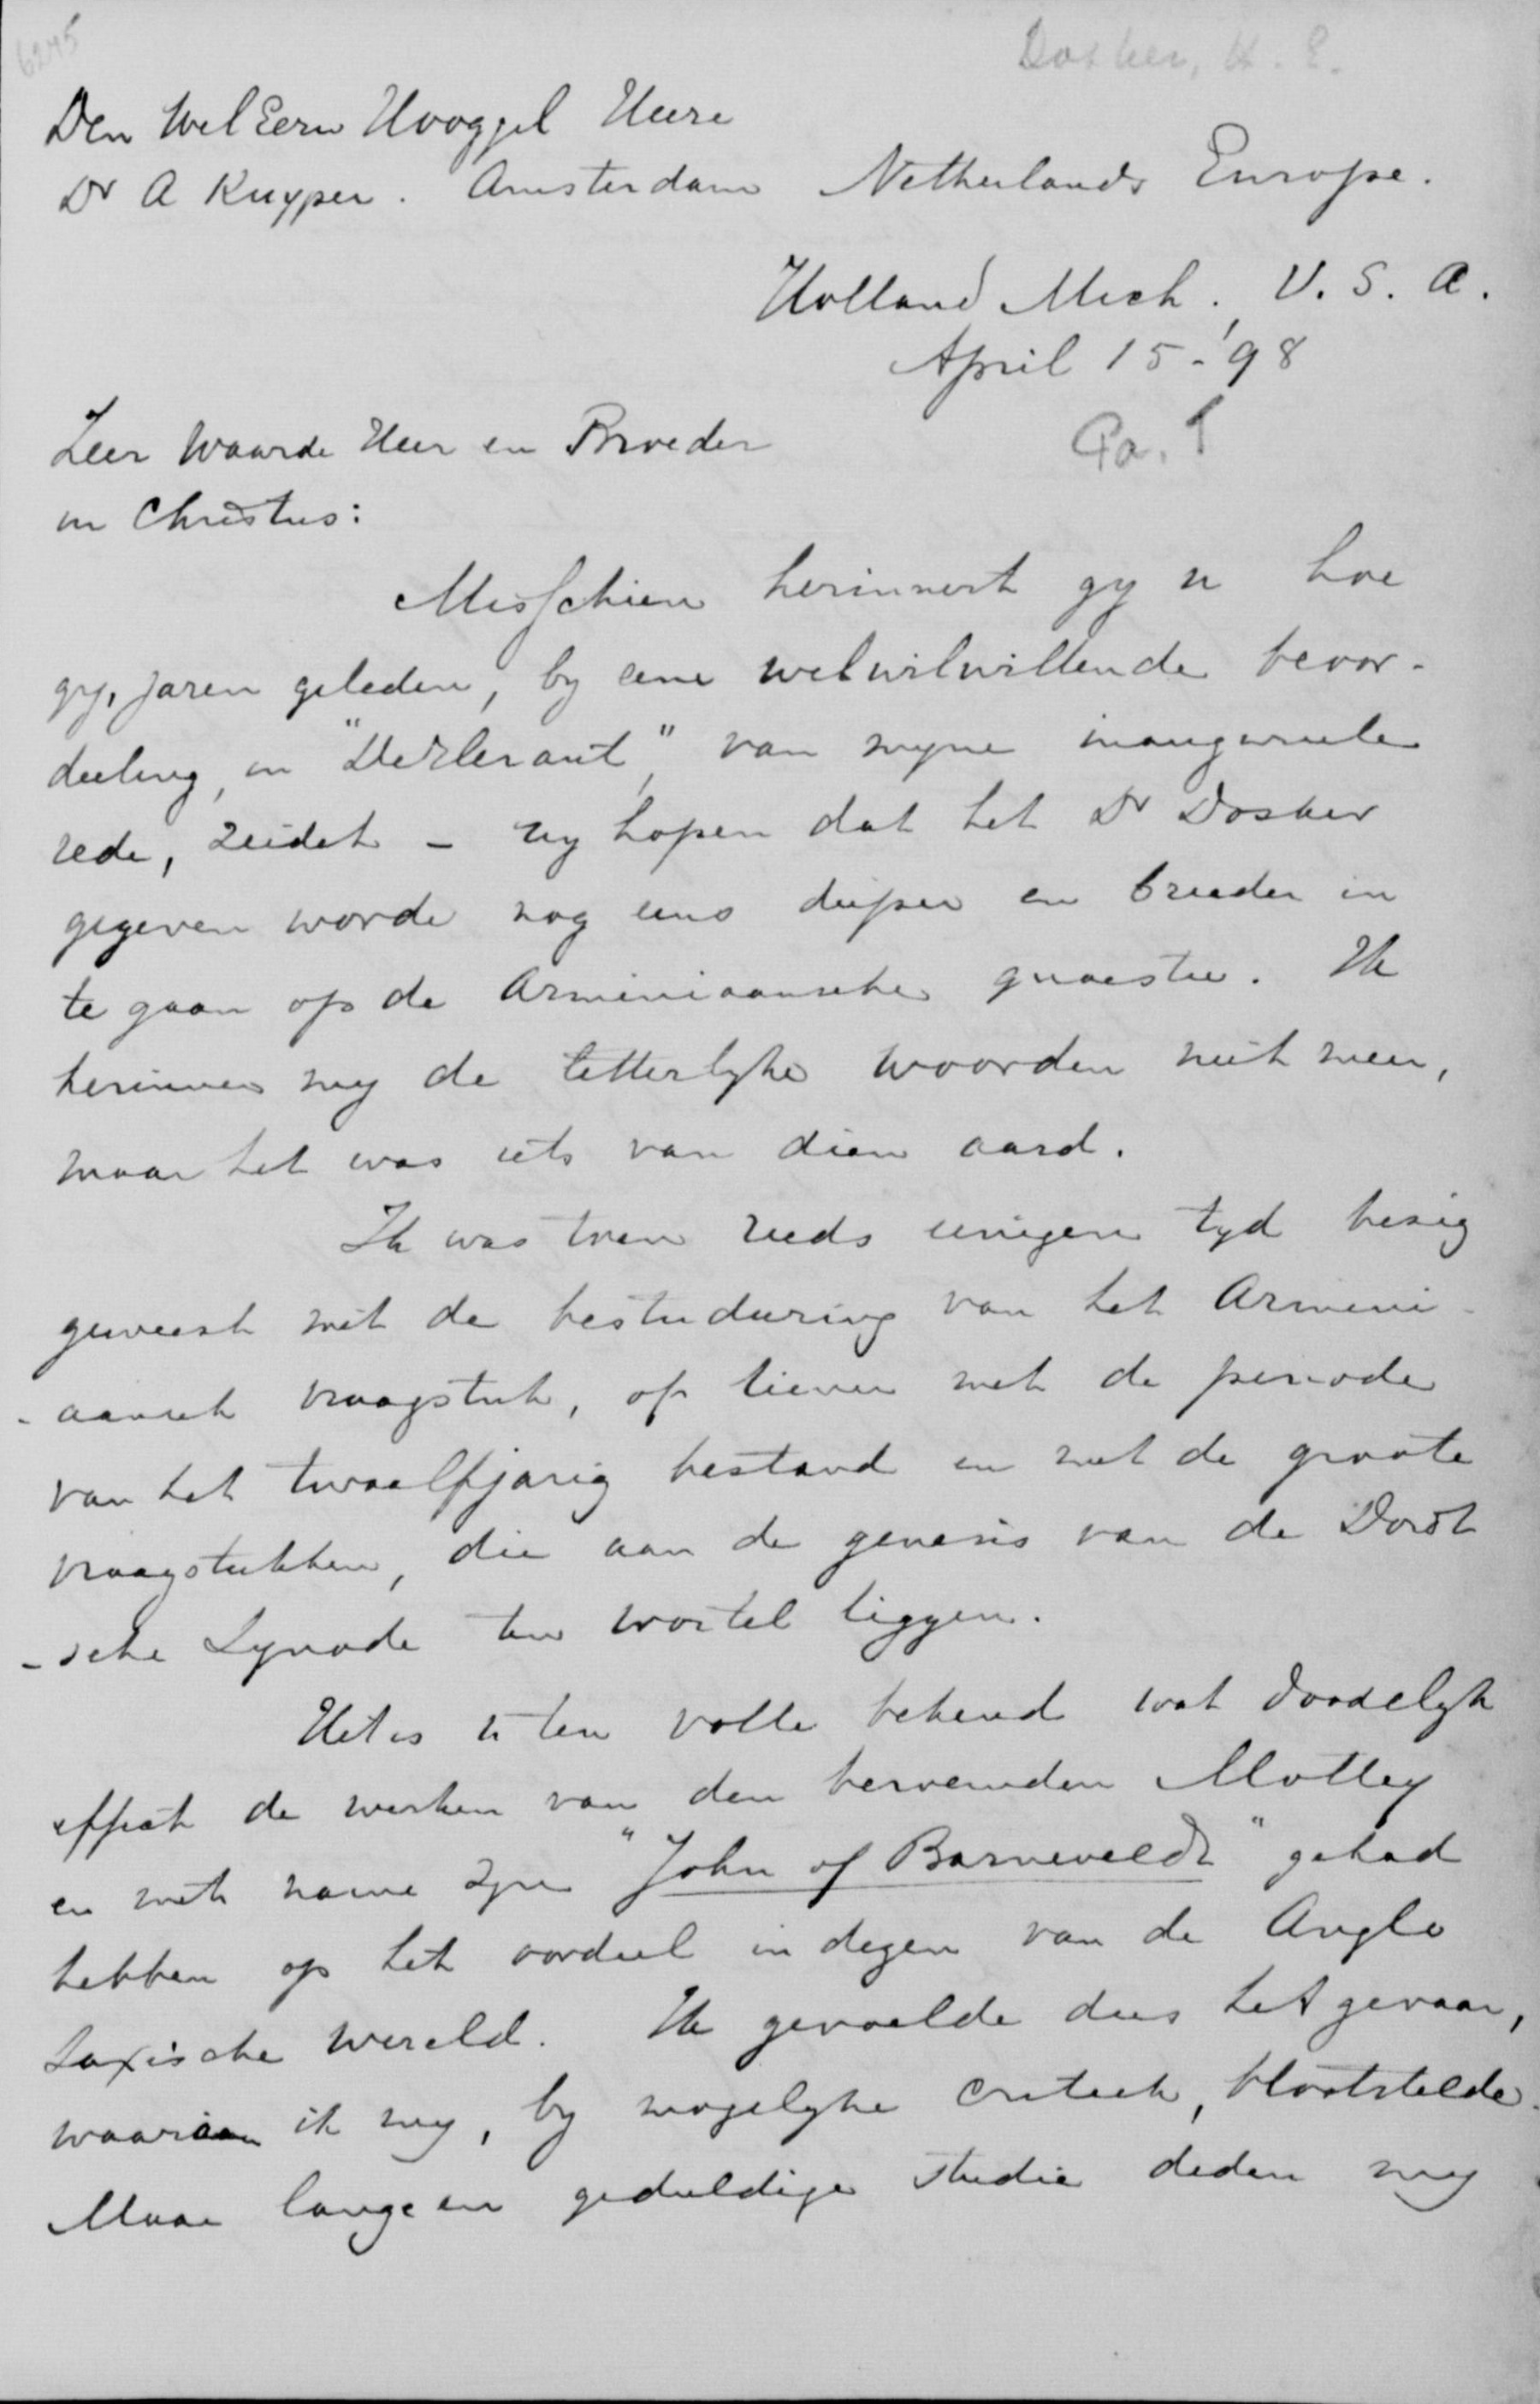 6245
Dosker, H. E.
Den WelEerw Hooggel Heere
Dr A Kuyper. Amsterdam Netherlands Europe.
Holland Mich. U. S. A.
April 15-'98
Zeer Waarde Heer en Broeder
in Christus:
Misschien herinnert gy u hoe
gy, jaren geleden, by eene welwilwillende beoor-
deeling, in "De Heraut", van myne inaugureele
rede, zeidet – wy hopen dat het Dr Dosker
gegeven worde nog eens dieper en breeder in
te gaan op de Arminiaansche quaestie. Ik
herinner my de letterlyke woorden niet meer,
maar het was iets van dien aard.
Ik was toen reeds eenigen tyd bezig
geweest met de bestudeering van het Armini-
-aansch vraagstuk, of liever met de periode
van het twaalfjarig bestand en met de groote
vraagstukken, die aan de genesis van de Dordt
-sche Synode ten wortel liggen.
Het is u ten volle bekend wat doodelyk
effect de werken van den beroemden Motley
en met name zyn "John of Barneveldt" gehad
hebben op het oordeel in dezen van de Anglo
Saxische wereld. Ik gevoelde dus het gevaar,
waaraan ik my, by mogelyke critiek, blootstelde.
Maar lange en geduldige studie deden my